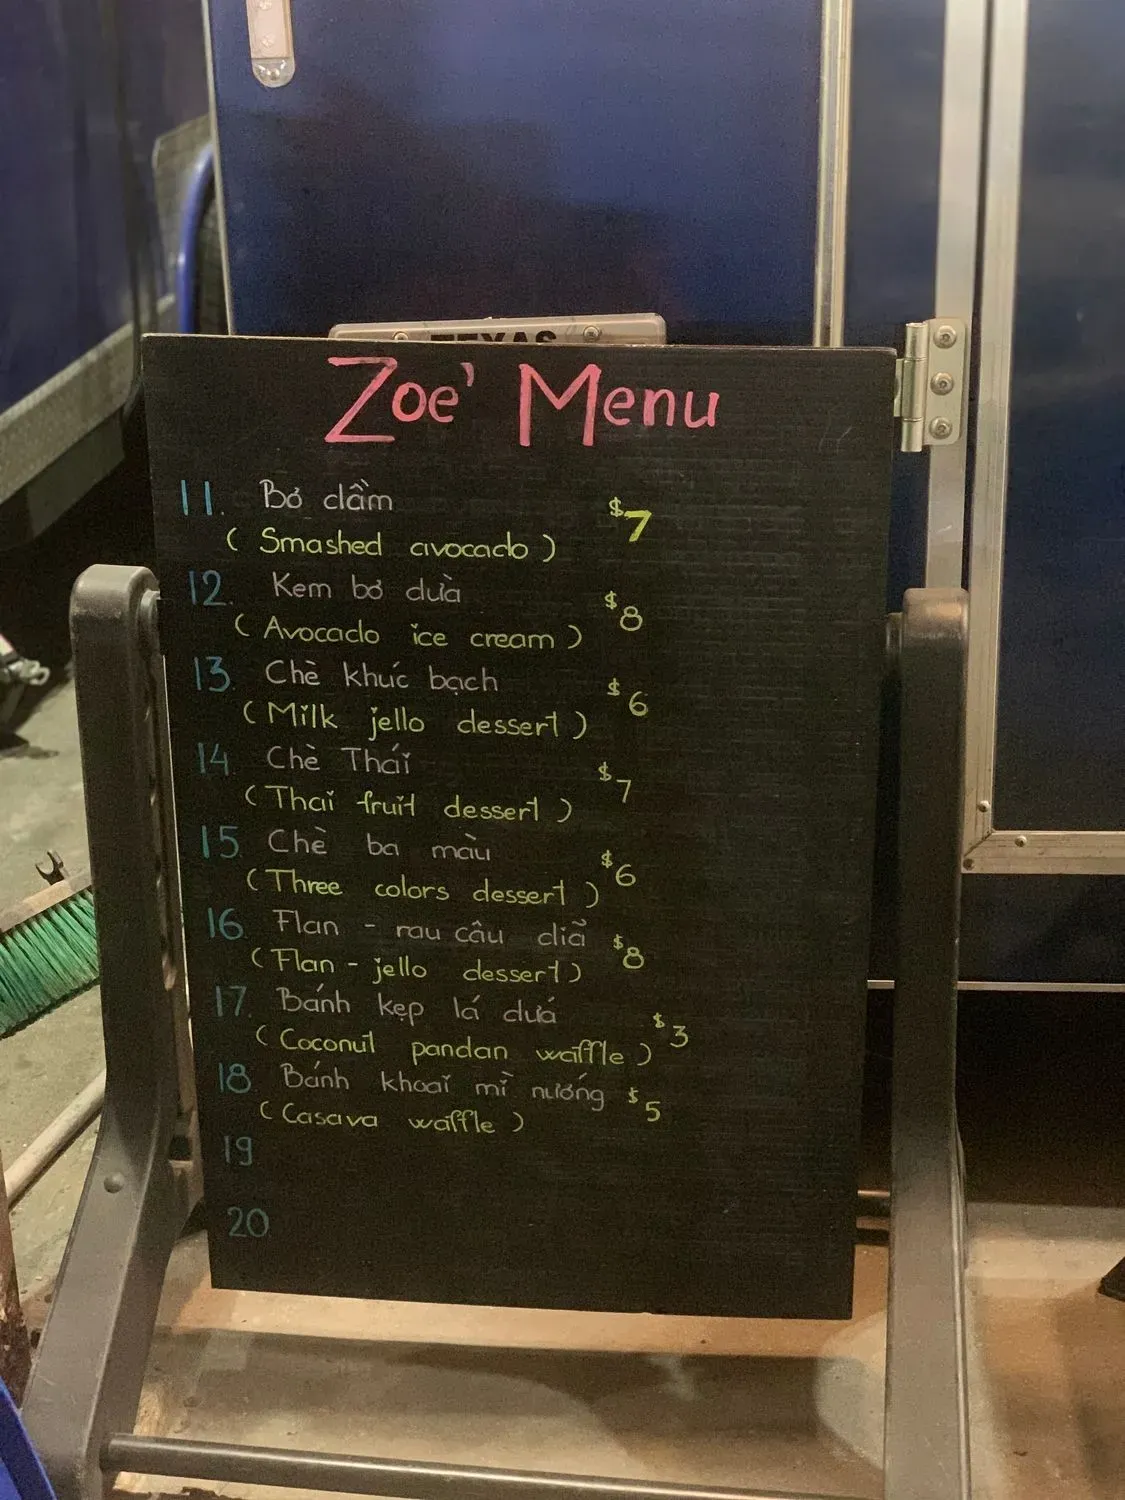 TEXAS
Zoe' Menu
11. Bơ dầm $7
( Smashed avocado )
12. Kem bơ dừa $8
( Avocado ice cream )
13. Chè khúc bạch $6
( Milk jello dessert )
14. Chè Thái $7
( Thai fruit dessert )
15. Chè ba màu $6
( Three colors dessert )
16. Flan - rau câu dĩa $8
( Flan - jello dessert )
17. Bánh kẹp lá dứá $3
( Coconut pandan waffle )
18. Bánh khoai mì nướng $5
( Casava waffle )
19
20